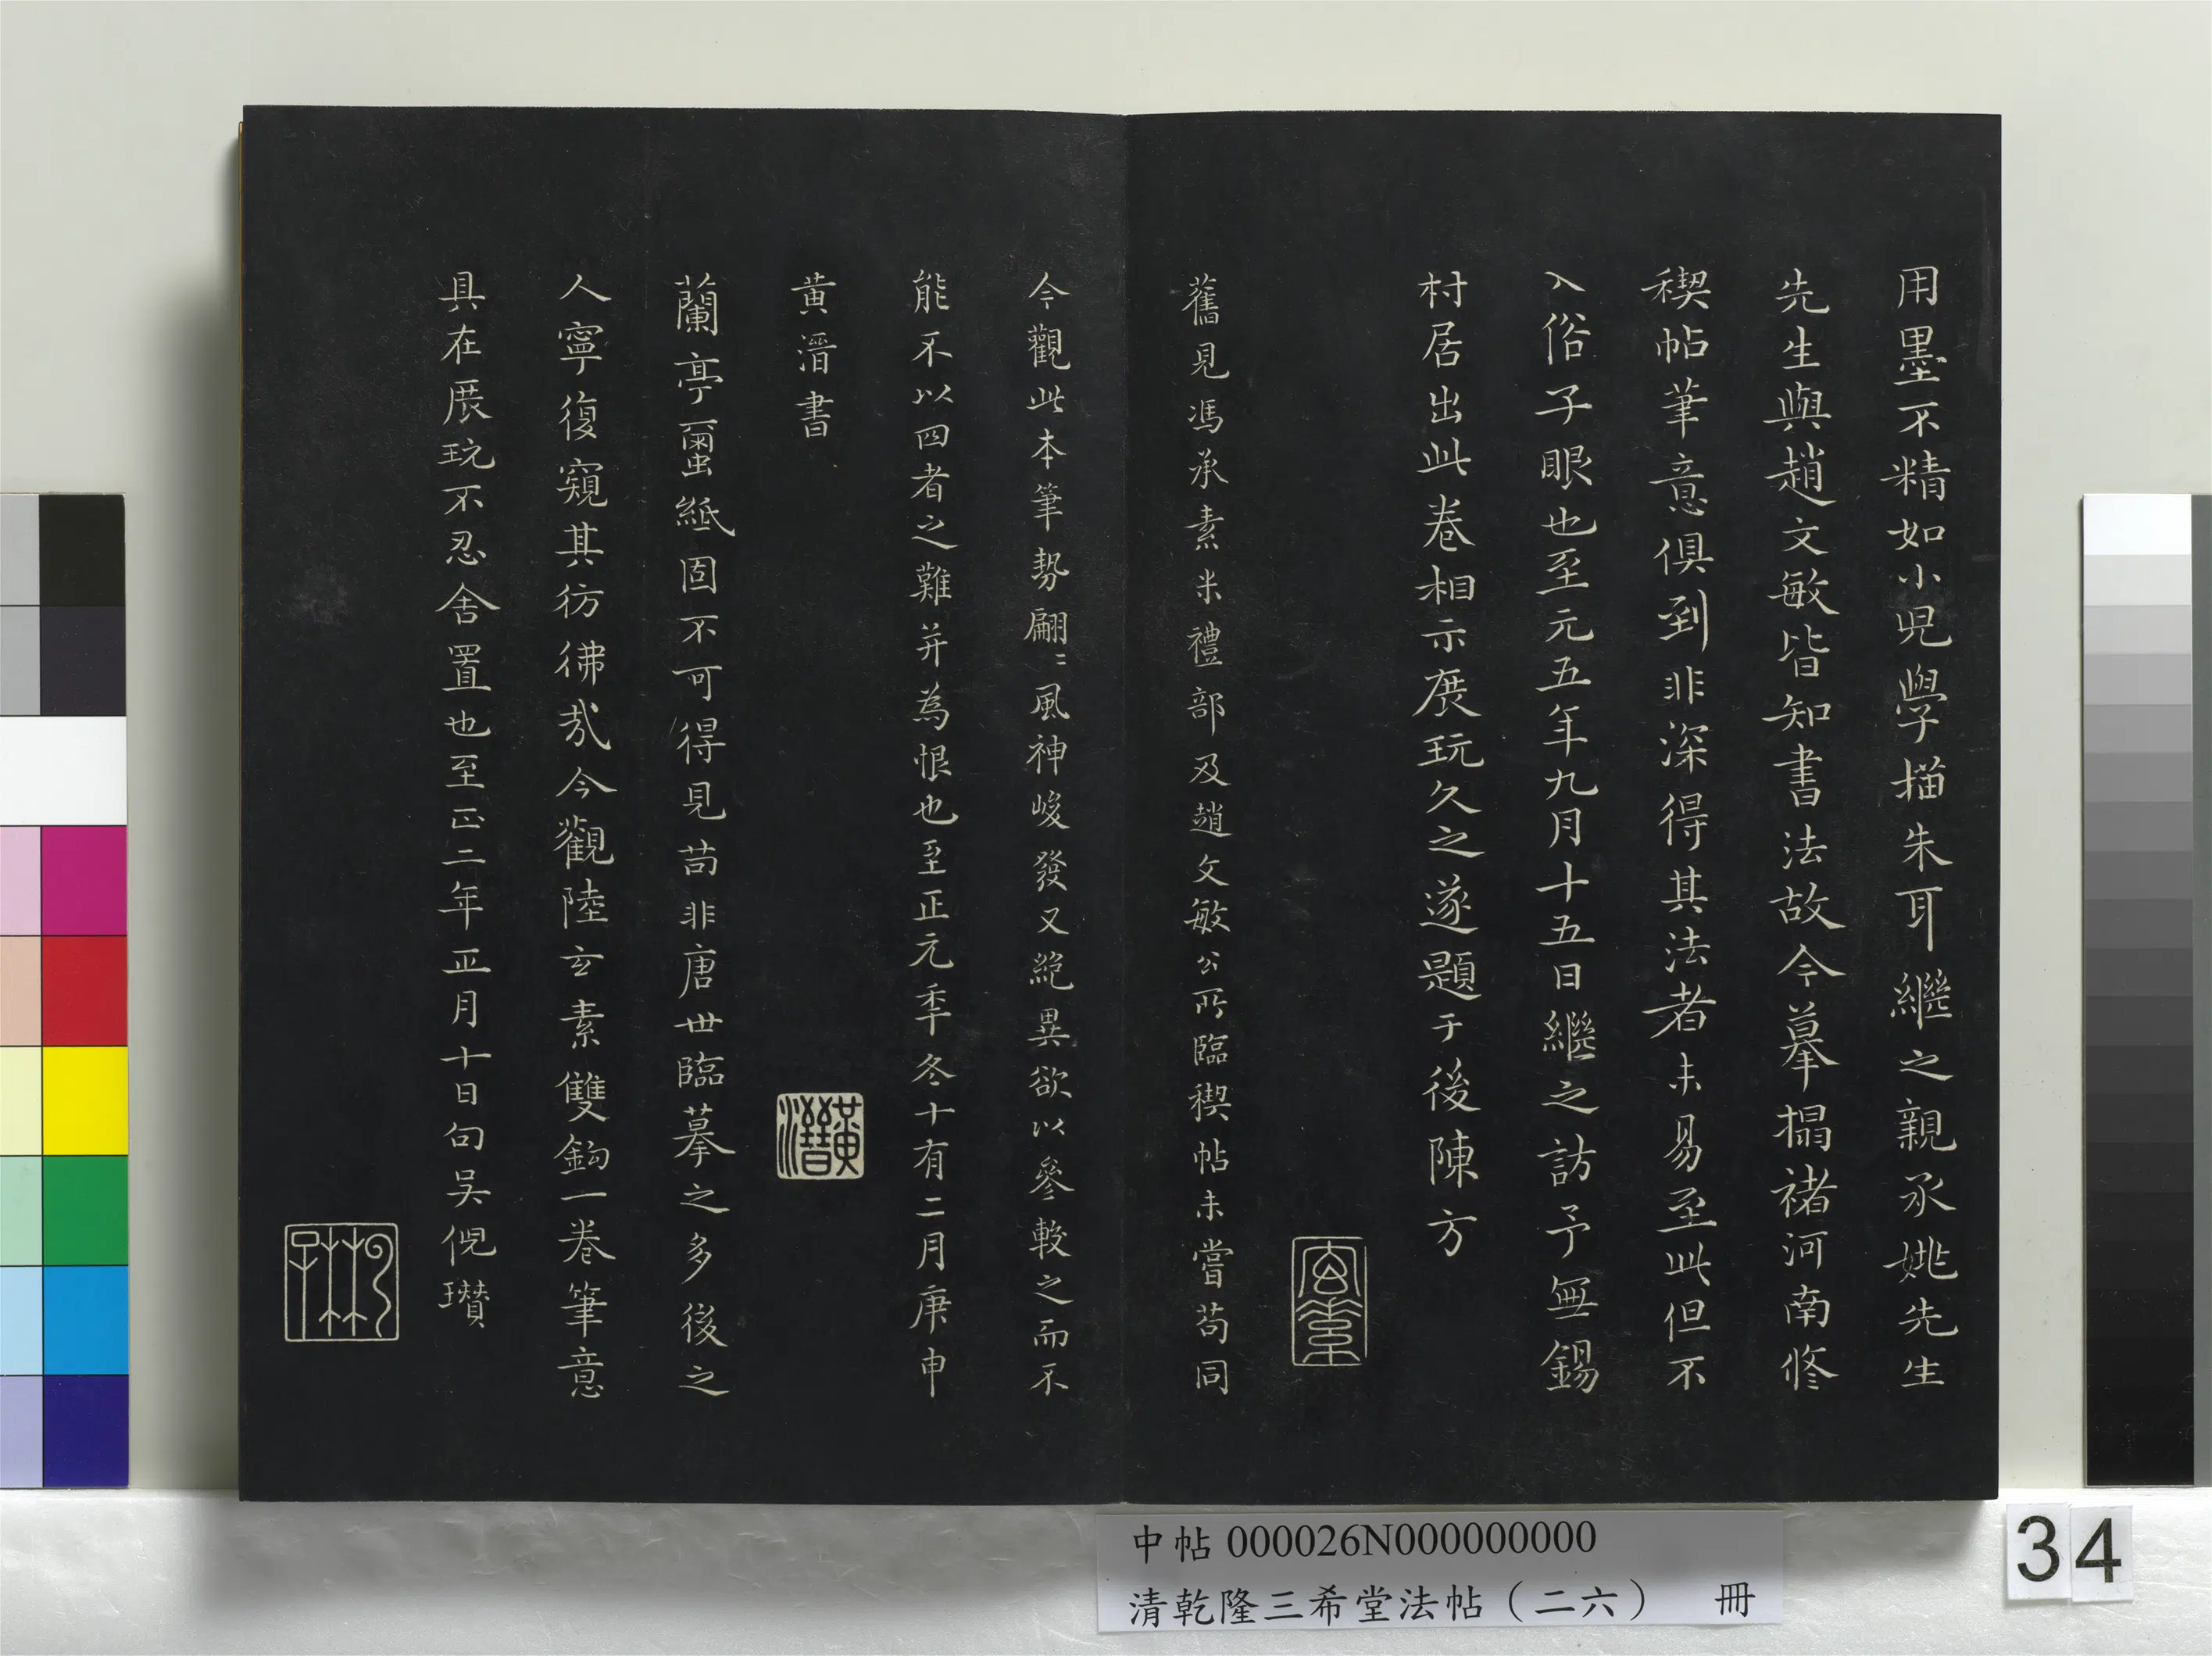 用墨不精如小兒學描朱耳繼之親承姚先生
先生與趙文敏皆知書法故今摹搨褚河南脩
稧帖筆意俱到非深得其法者未易至此但不
入俗子眼也至元五年九月十五日繼之訪予無錫
村居出此卷相示展玩久之遂題于後陳方
舊見馮承素米禮部及趙文敏公所臨稧帖未嘗苟同
今觀此本筆勢翩〻風神峻發又絕異欲以參較之而不
能不以四者之難并為恨也至正元季冬十有二月庚申
黃溍書
黃溍
蘭亭蠒紙固不可得見茍非唐世臨摹之多後之
人寧復窺其彷彿哉今觀陸玄素雙鈎一卷筆意
具在展玩不忍舍置也至正二年正月十日句吳倪瓚
中帖 000026N000000000
清乾隆三希堂法帖（二六） 冊
34